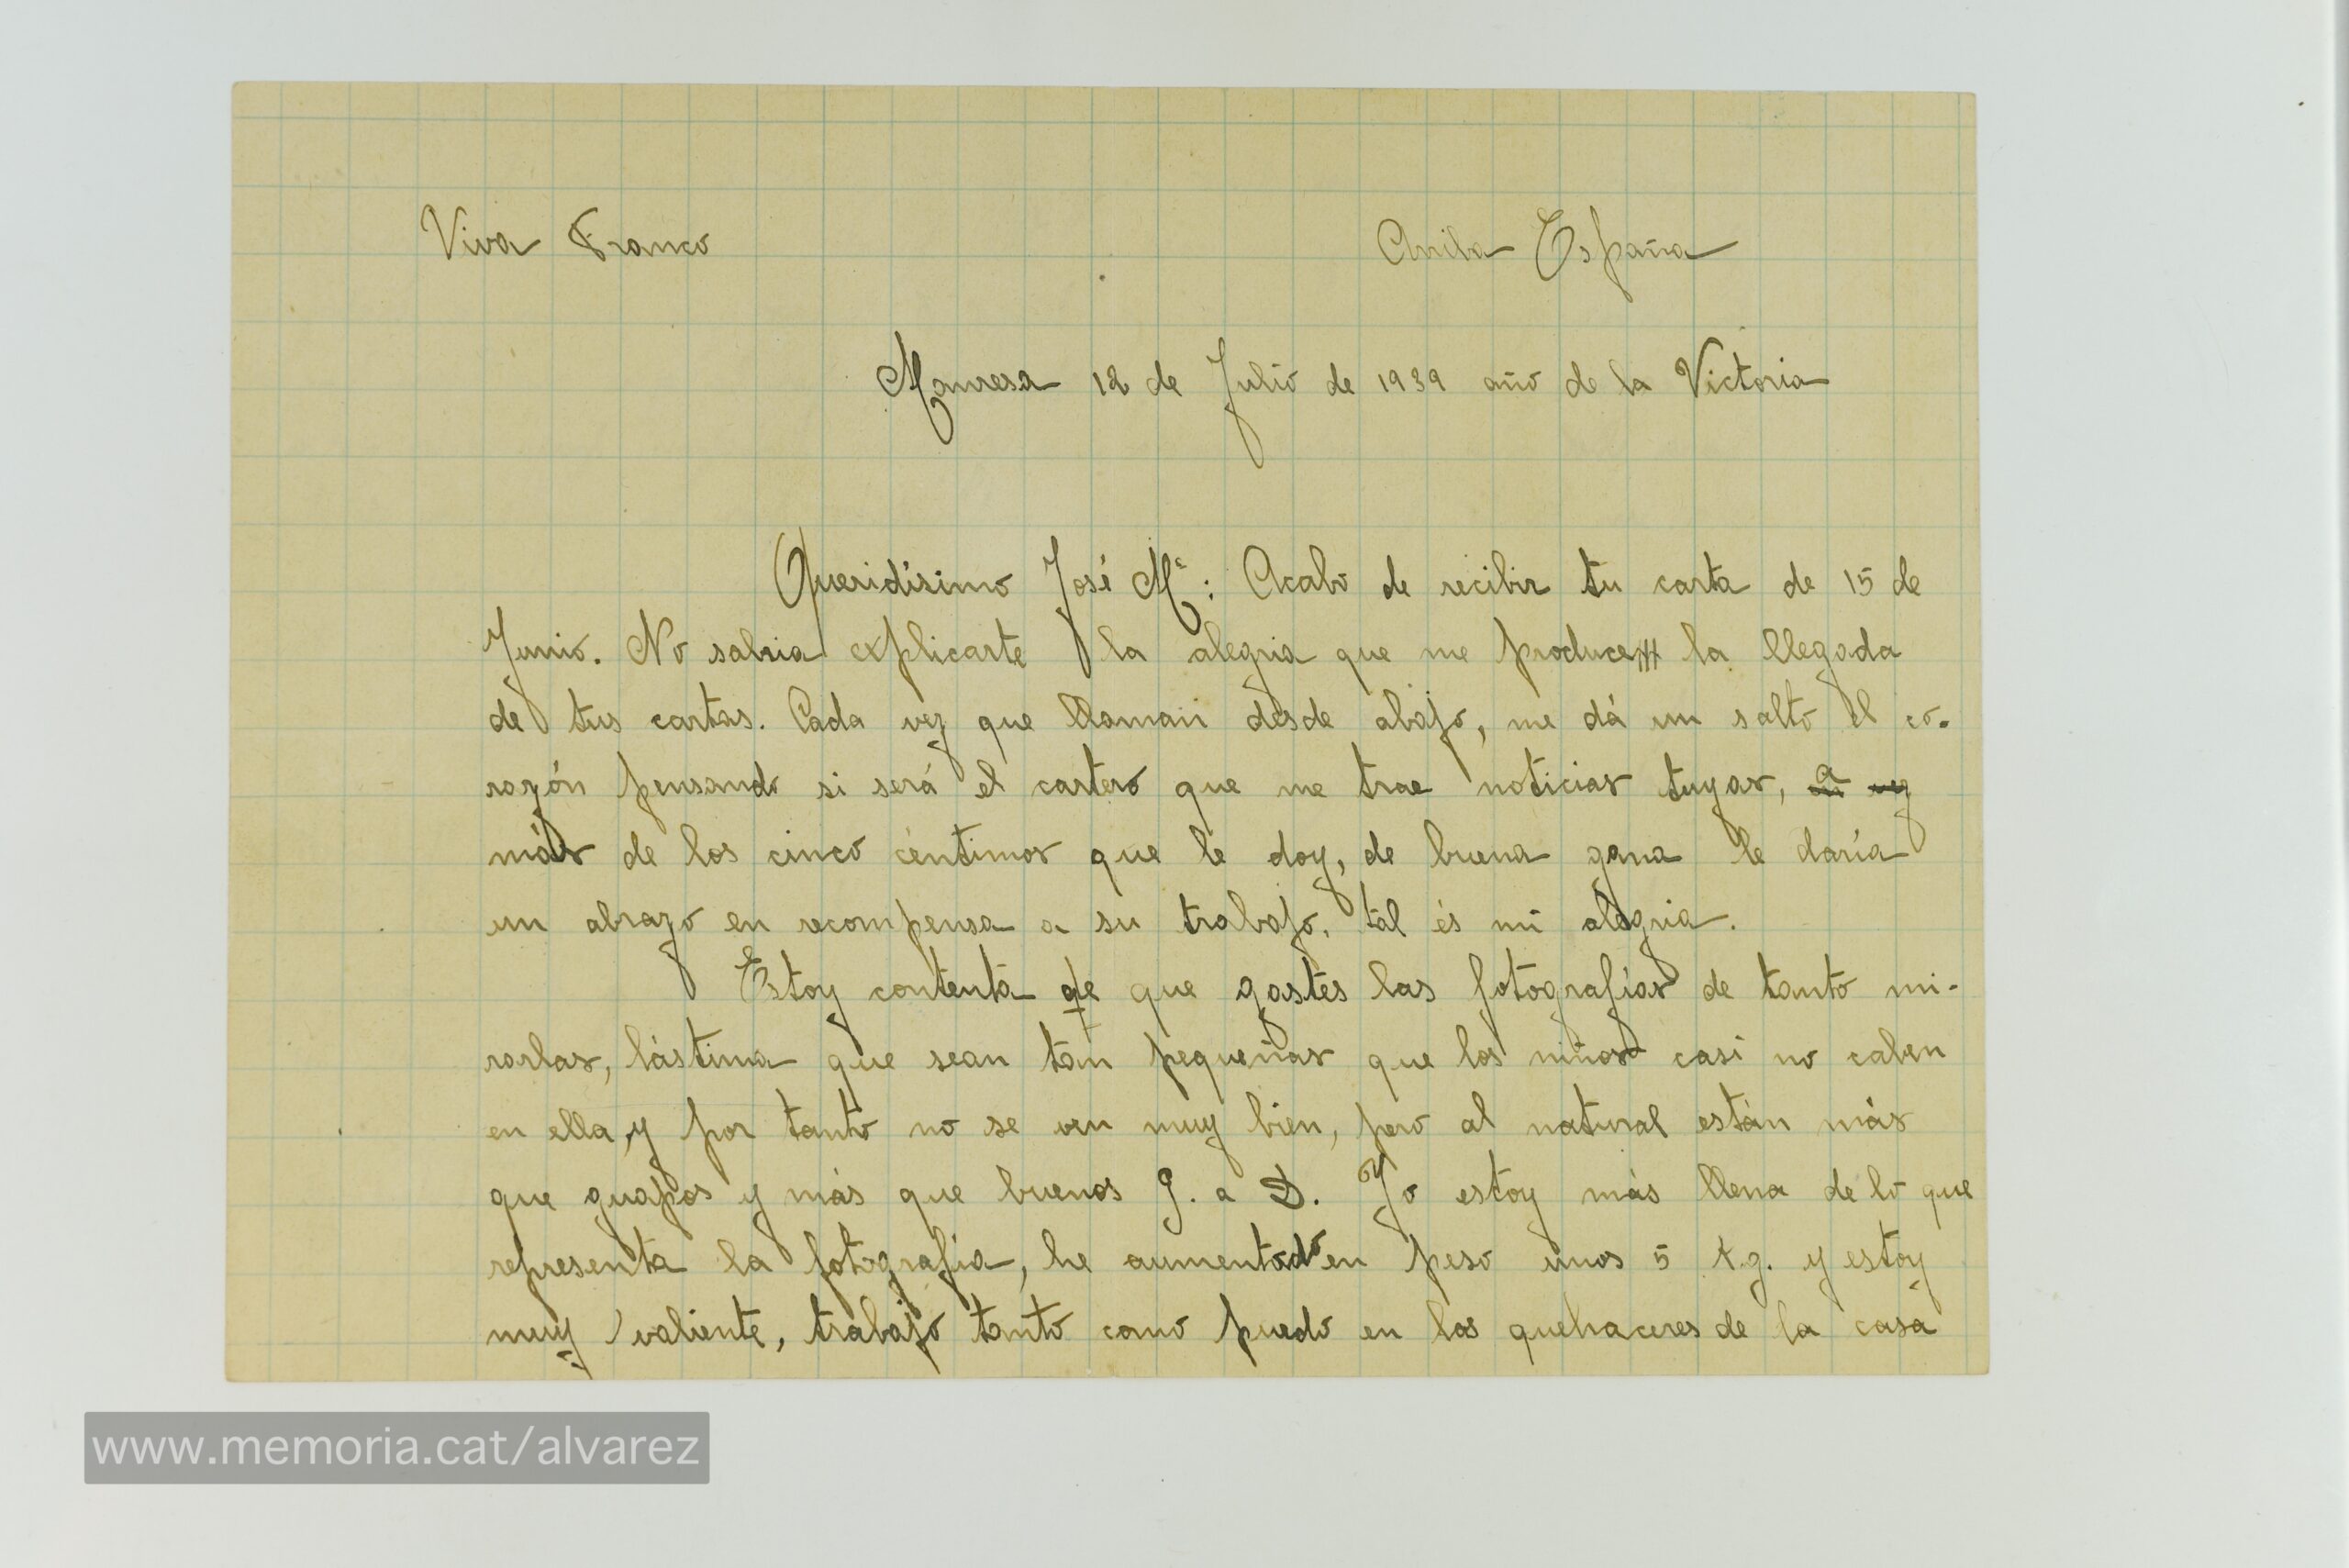 Viva Franco Arriba España
Manresa 12 de Julio de 1939 año de la Victoria
Queridísimo José Mª: Acabo de recibir tu carta de 15 de
Junio. No sabria explicarte la alegria que me produce la llegada
de tus cartas. Cada vez que llaman desde abajo, me dá un salto el co-
razón pensando si será el cartero que me trae noticias tuyas, a
más de los cinco céntimos que le doy, de buena gana le daría
un abrazo en recompensa a su trabajo, tal és mi alegria.
Estoy contenta de que gastes las fotografías de tanto mi-
rarlas, lástima que sean tan pequeñas que los niños casi no caben
en ella, y por tanto no se ven muy bien, pero al natural están más
que guapos y más que buenos G. a D. Yo estoy más llena de lo que
representa la fotografia, he aumentado en peso unos 5 k.g. y estoy
muy valiente, trabajo tanto como puedo en los quehaceres de la casa
www.memoria.cat/alvarez